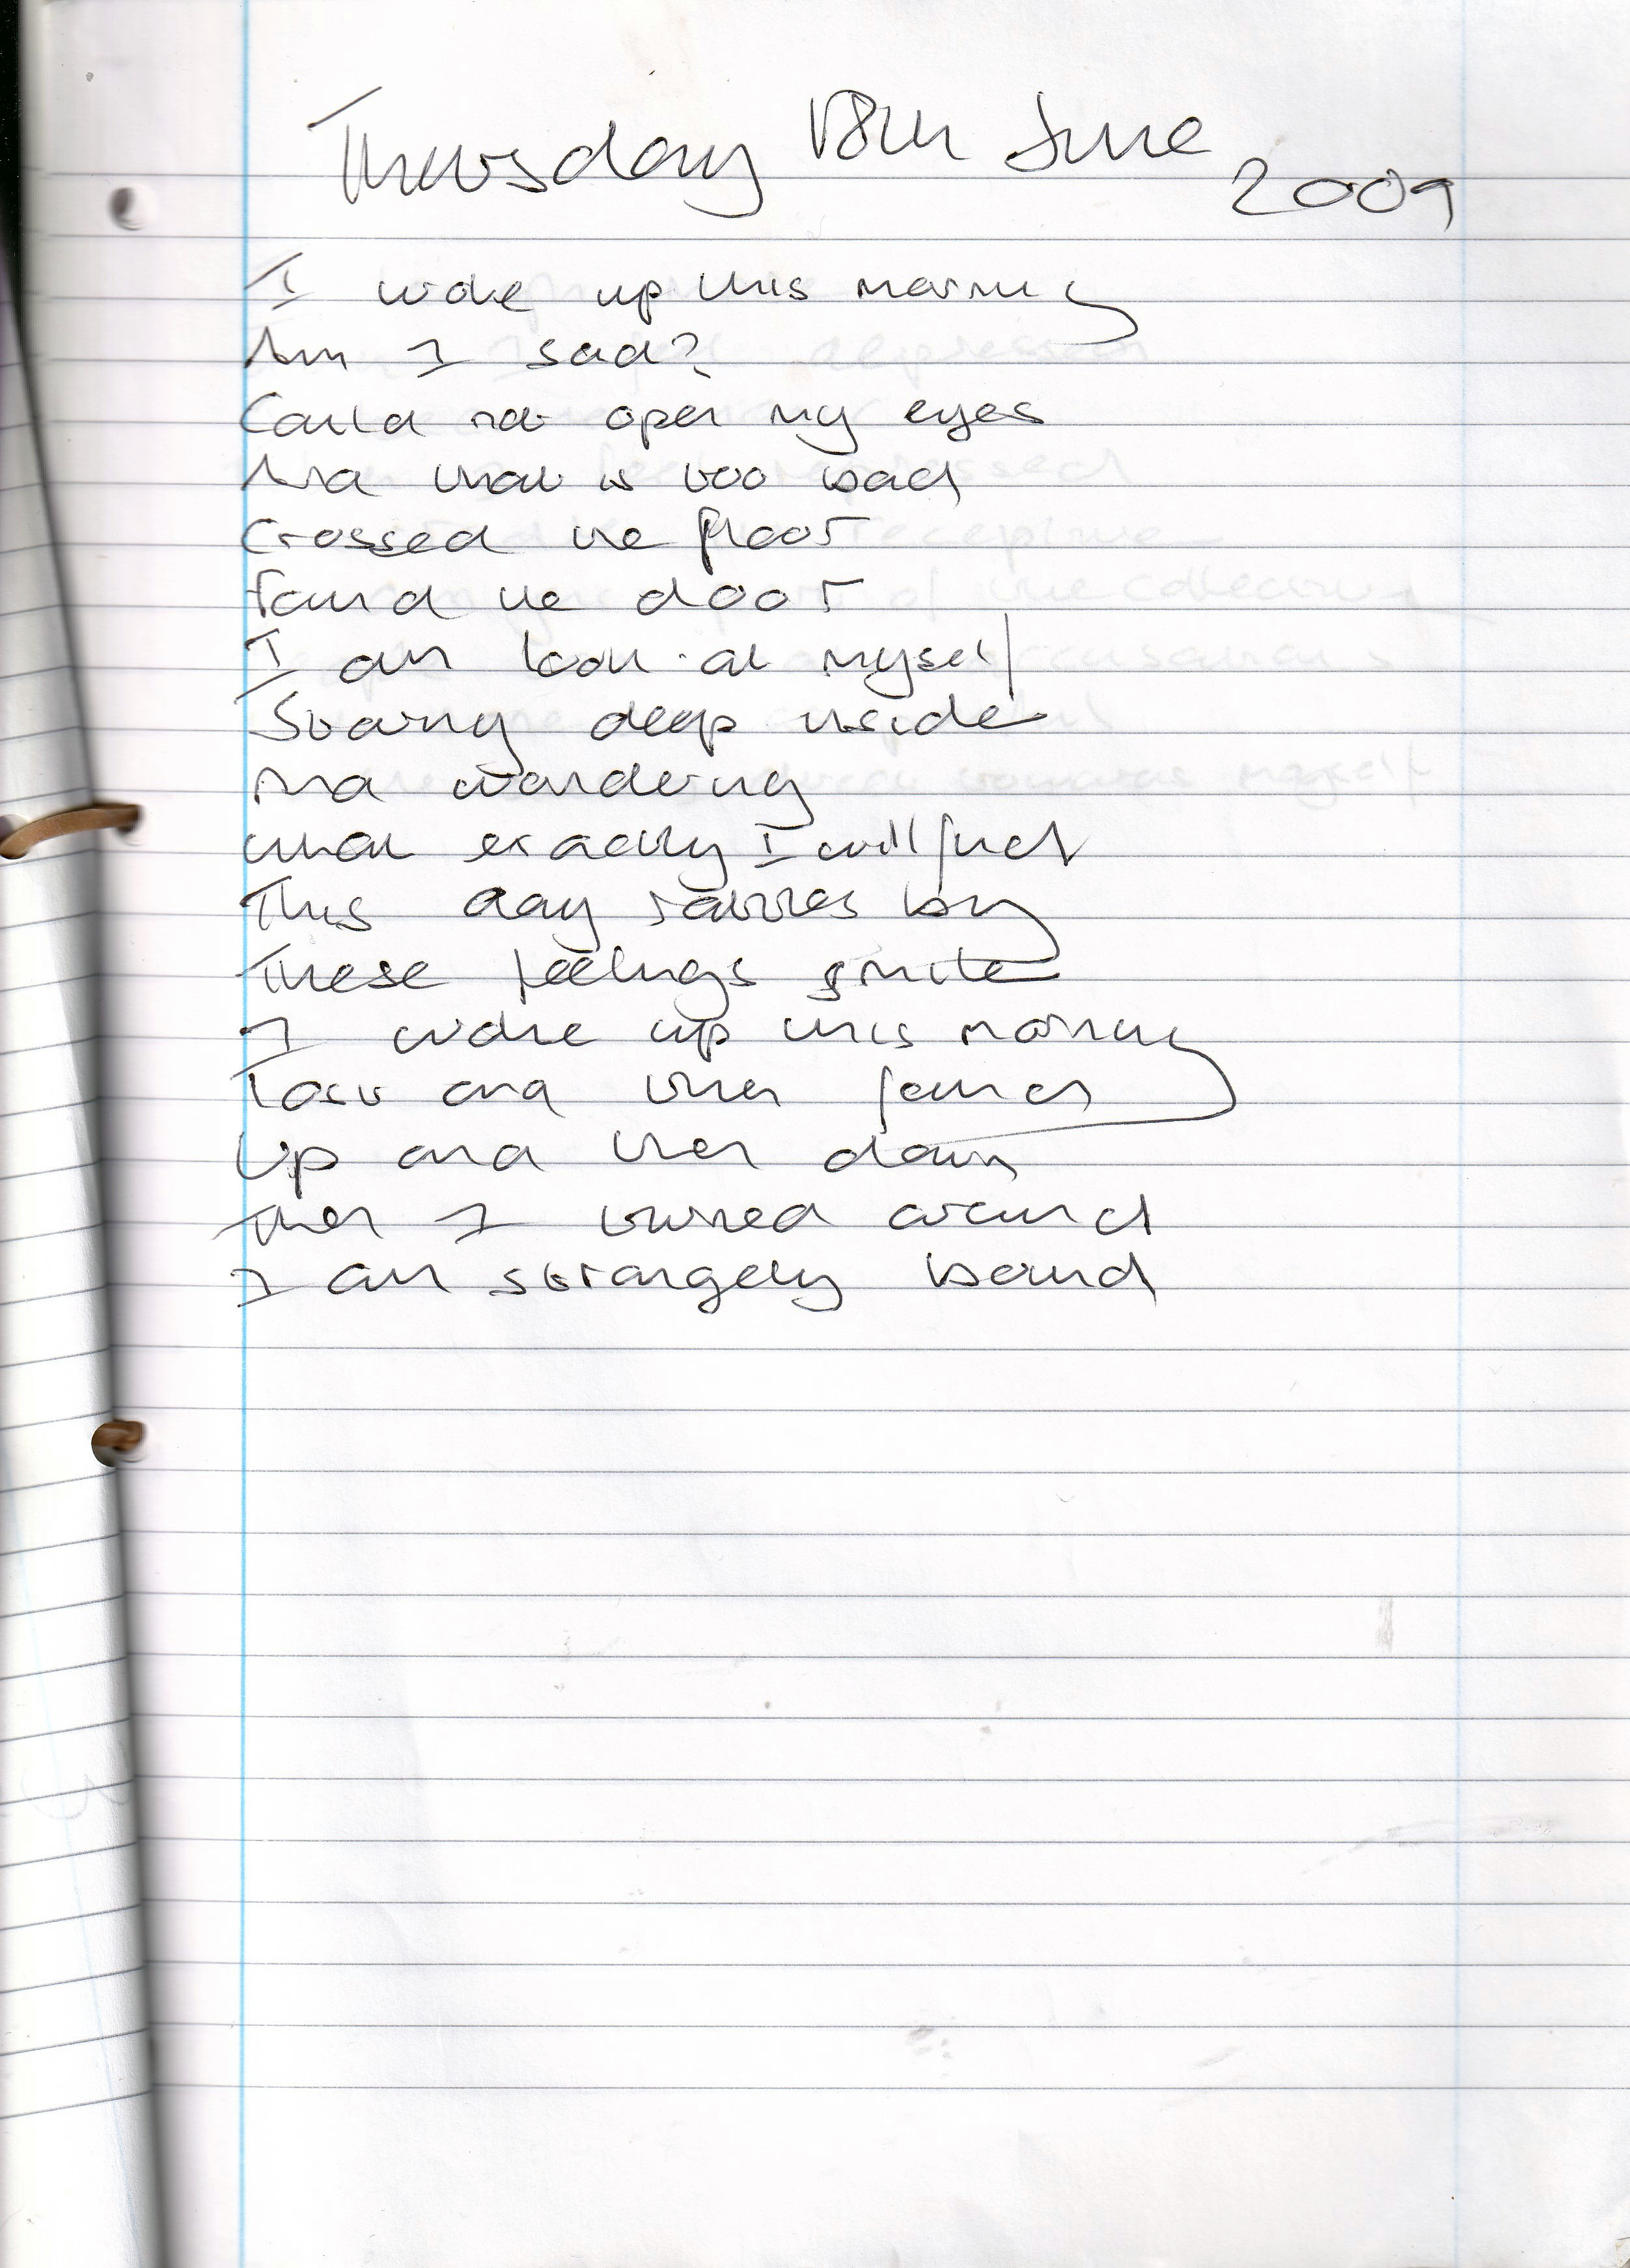 Thursday 18th June
2009
I woke up this morning
Am I sad?
Could not open my eyes
And that is too bad
Crossed the floor
Found the door
I am look at myself
Staring deep inside
And wondering
What exactly I will find
This day rattles by
These feelings smite
I woke up this morning
Lost and then found
Up and then down
Then I turned around
I am strangely bound